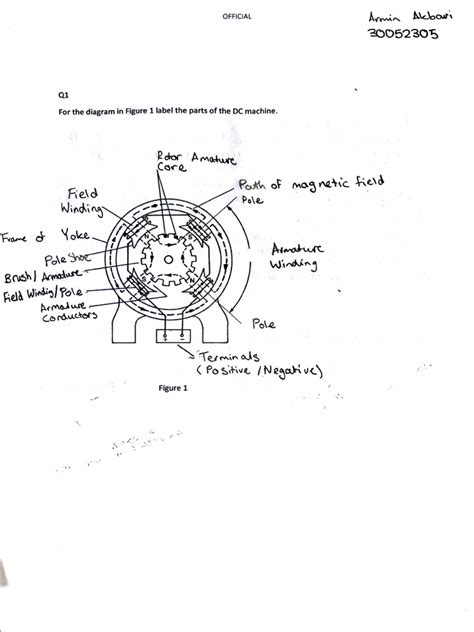 OFFICIAL
Armin Akbari
30052305
Q1
For the diagram in Figure 1 label the parts of the DC machine.
Rotor Armature
Core
Field
Winding
Path of magnetic field
Pole
Frame of Yoke
Pole Shoe
Brush/ Armature
Field Winding/Pole
Armature
Conductors
Armature
Winding
N
S
S
N
S
N
+
-
Pole
Terminals
(Positive /Negative)
Figure 1